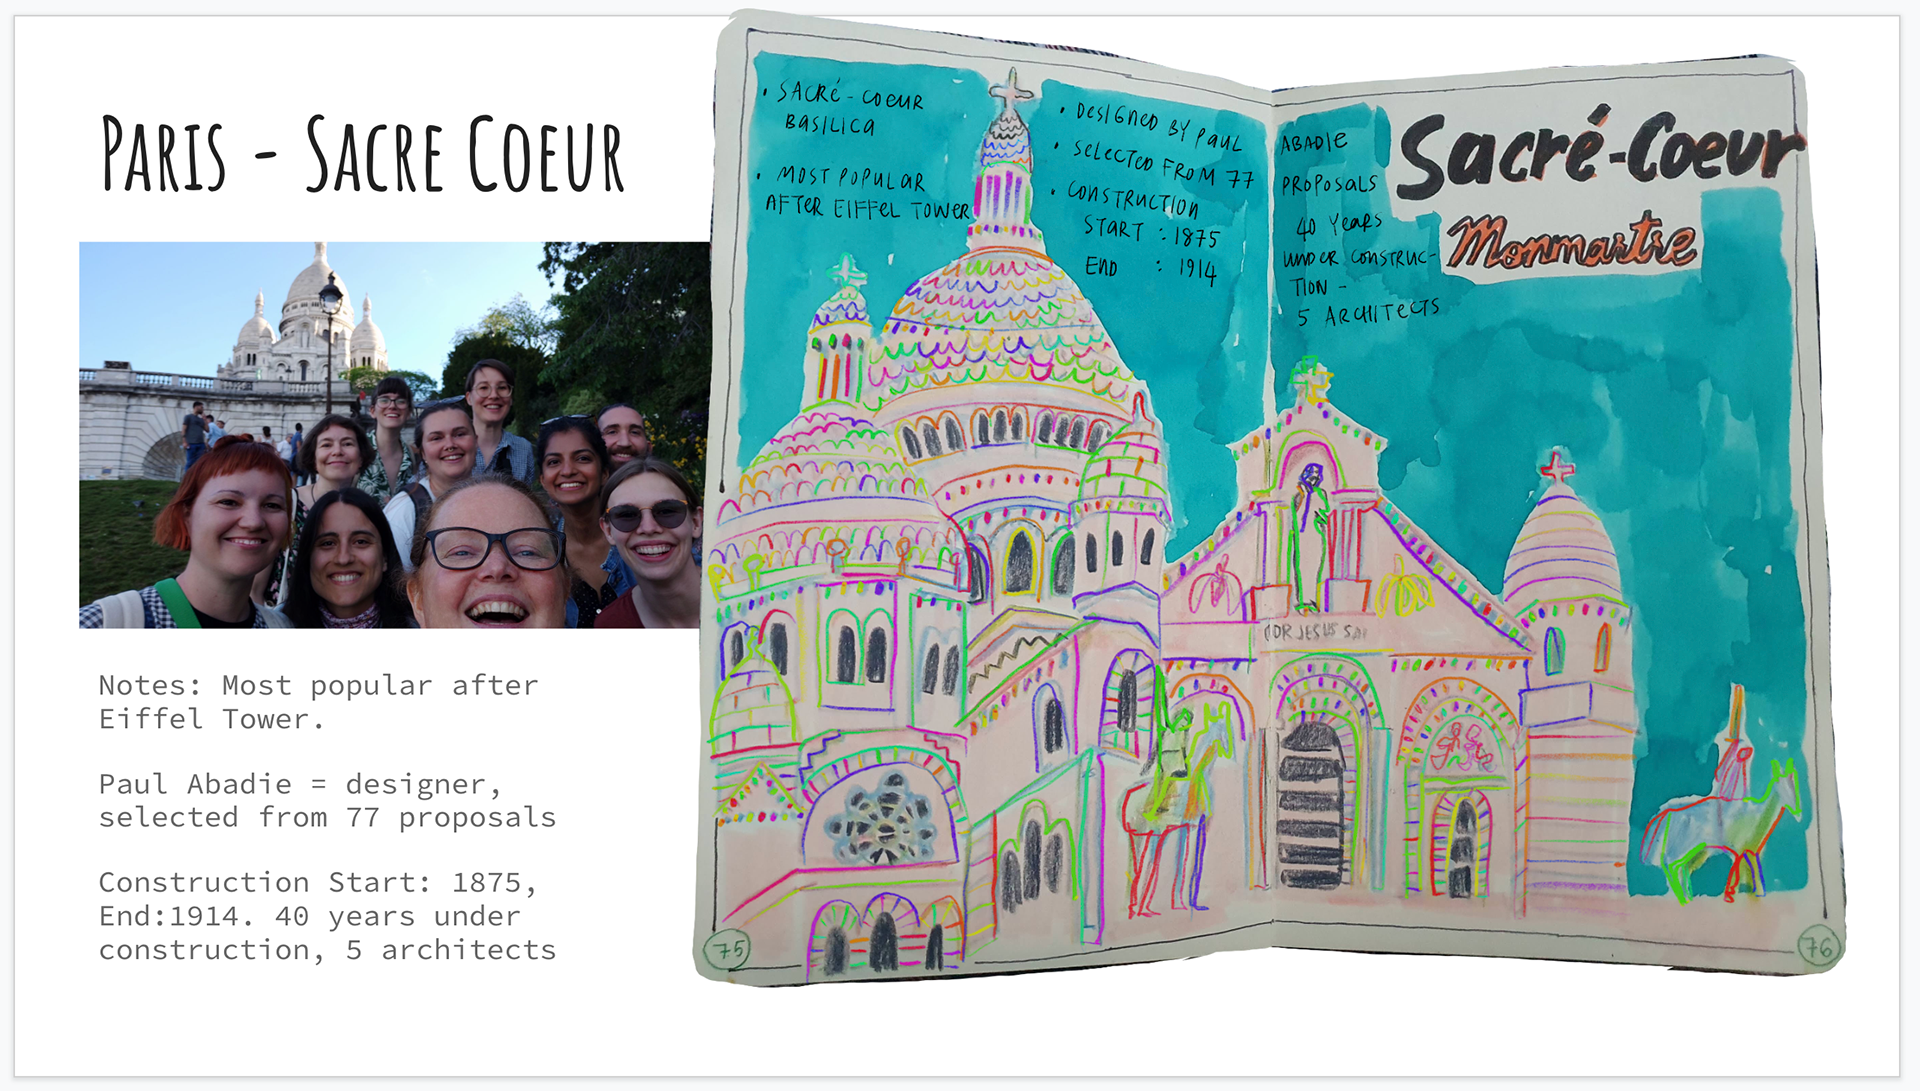 PARIS - SACRE COEUR
Notes: Most popular after
Eiffel Tower.
Paul Abadie = designer,
selected from 77 proposals
Construction Start: 1875,
End:1914. 40 years under
construction, 5 architects
• SACRé-COEUR
BASILICA
• MOST POPULAR
AFTER EIFFEL TOWER
• DESIGNED BY PAUL
• SELECTED FROM 77
• CONSTRUCTION
START : 1875
END : 1914
ABADIE
PROPOSALS
40 YEARS
UNDER CONSTRUC-
TION -
5 ARCHITECTS
Sacré-Coeur
Monmartre
COR JESUS SA
75
76